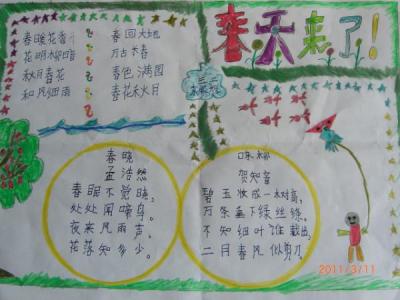 春天来了!
春暖花香 春回大地
花明柳暗 万古长春
秋月春花 春色满园
和风细雨 春花秋月
春晓
孟浩然
春眠不觉晓,
处处闻啼鸟。
夜来风雨声,
花落知多少。
咏柳
贺知章
碧玉妆成一树高,
万条垂下绿丝绦。
不知细叶谁裁出,
二月春风似剪刀。
2011/3/11